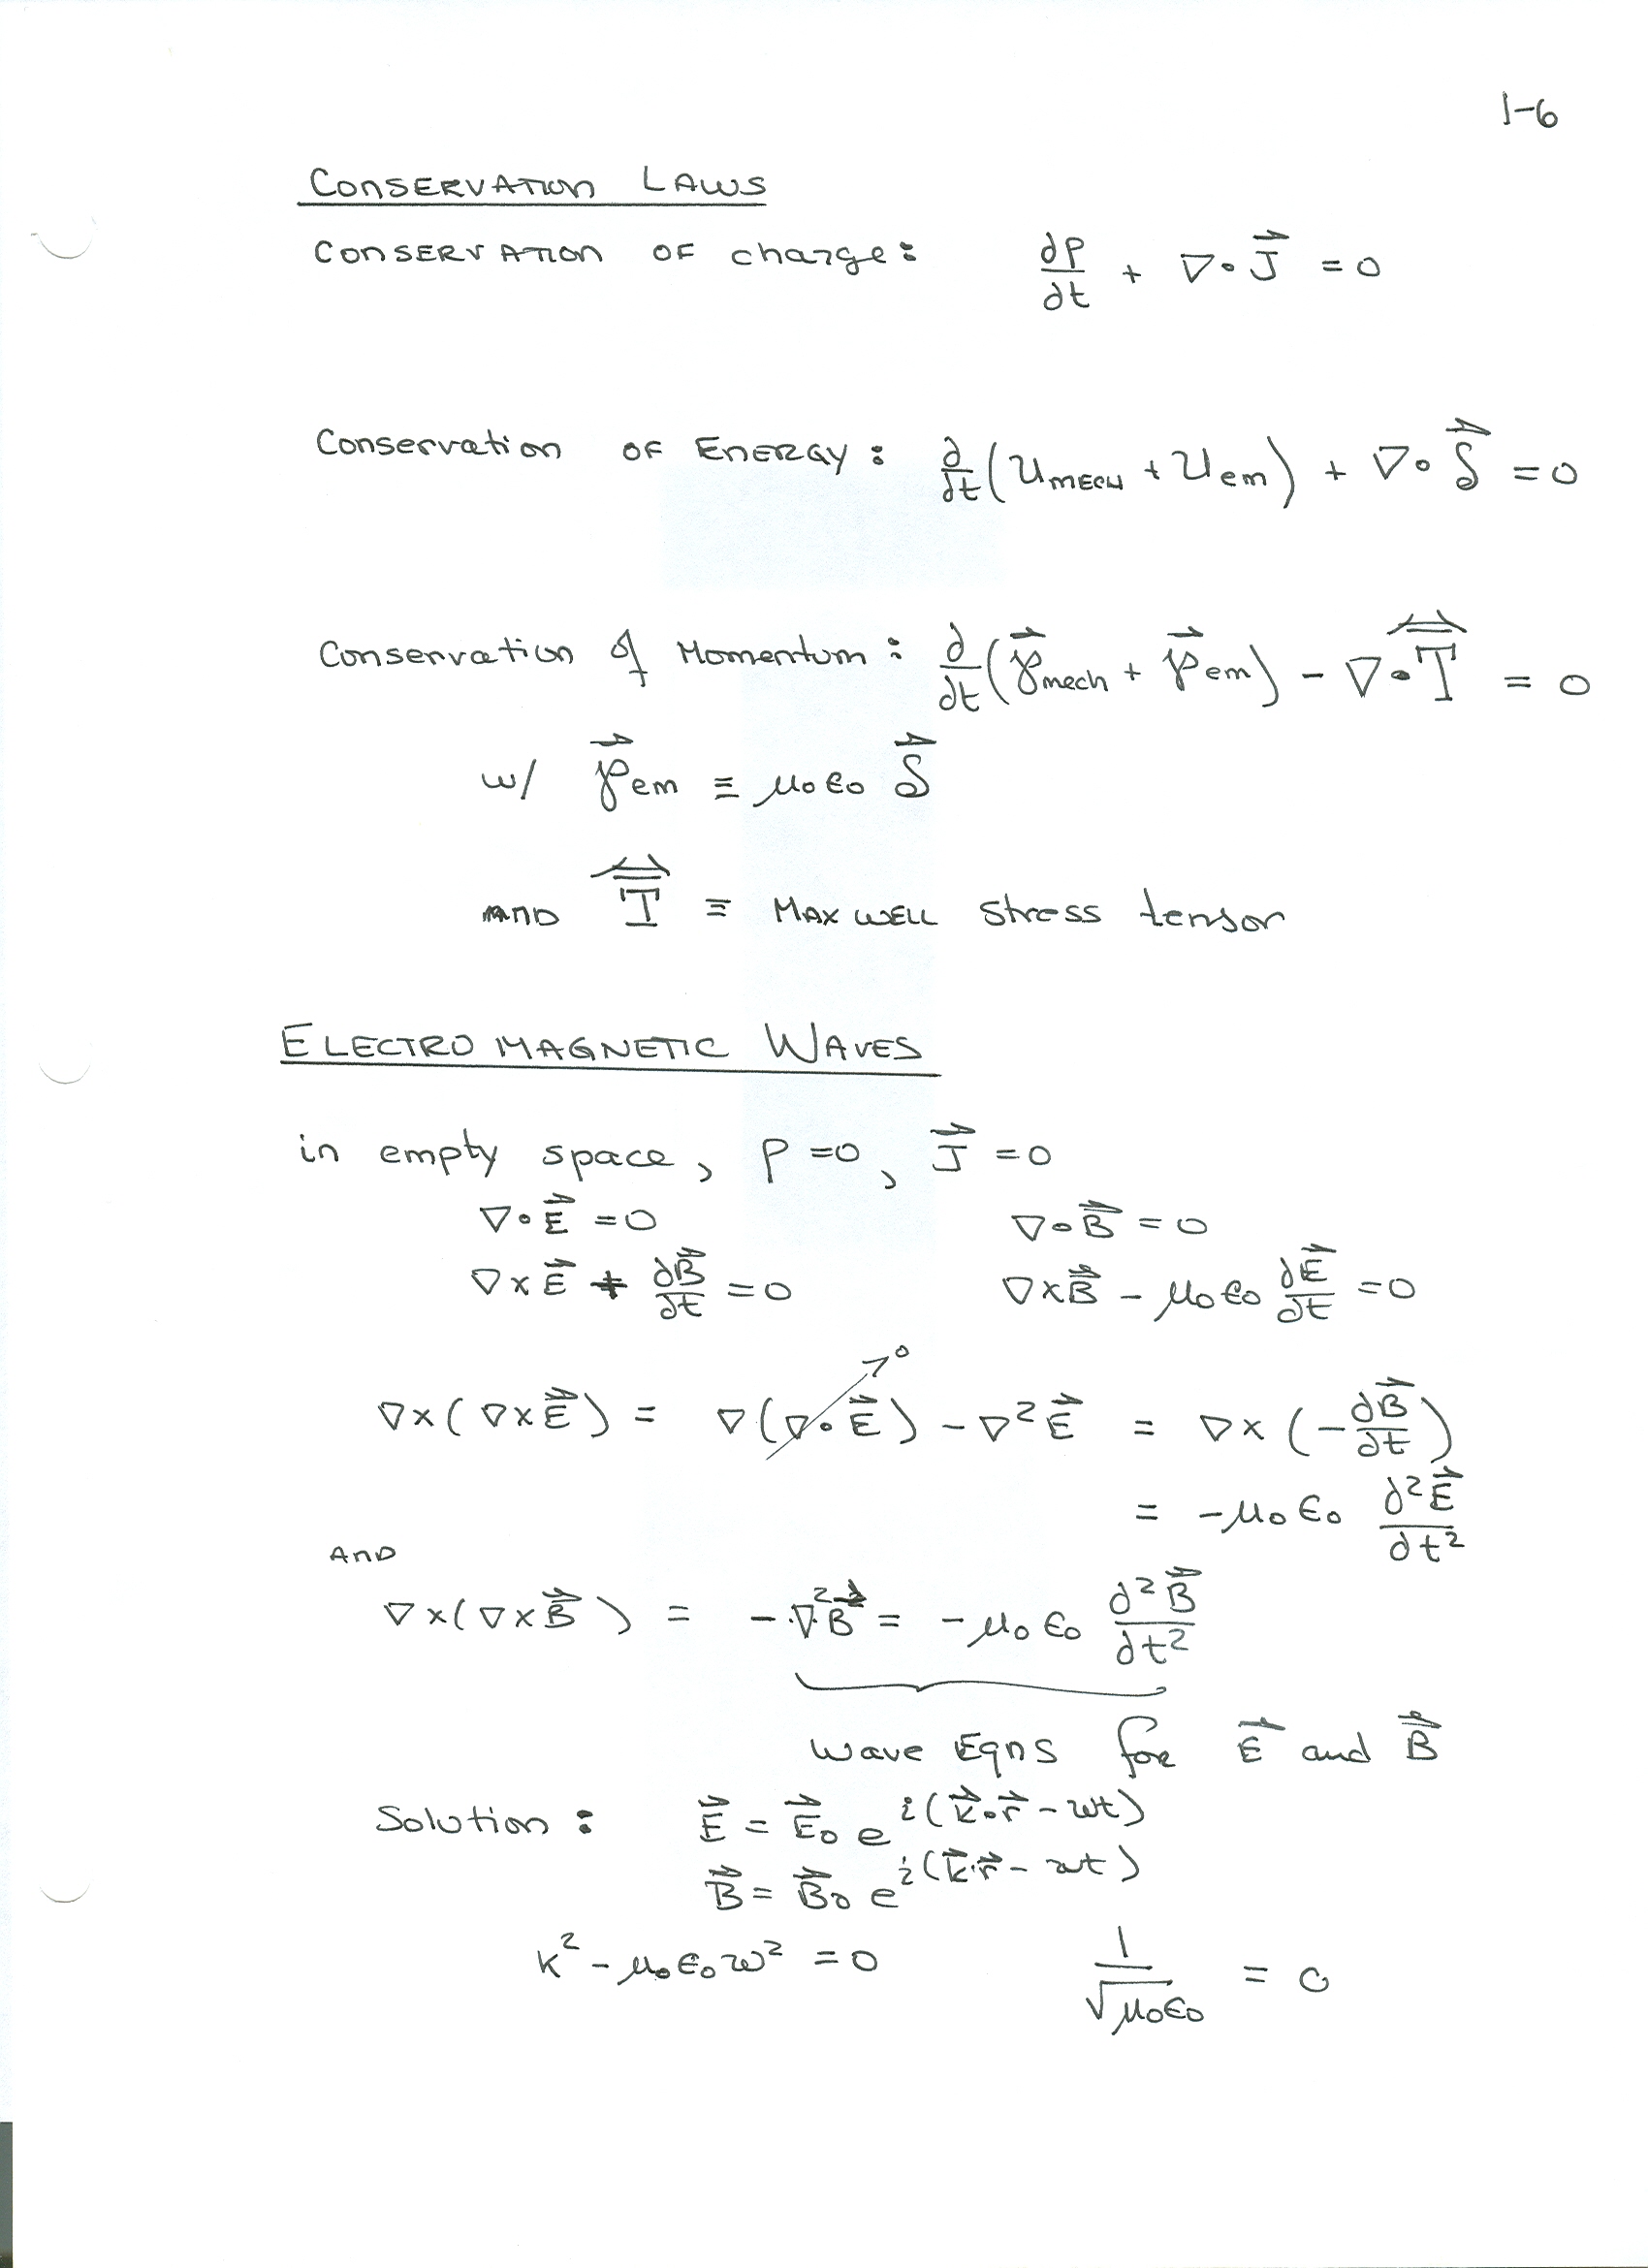 1-6
CONSERVATION LAWS
CONSERVATION OF charge: ∂ρ/∂t + ∇·J⃗ = 0
Conservation OF ENERGY: ∂/∂t (U_MECH + U_em) + ∇·S⃗ = 0
Conservation of Momentum: ∂/∂t (℘⃗_mech + ℘⃗_em) - ∇·T⃡ = 0
w/ ℘⃗_em ≡ μ₀ε₀ S⃗
AND T⃡ ≡ MAXWELL stress tensor
ELECTROMAGNETIC WAVES
in empty space, ρ = 0, J⃗ = 0
∇·E⃗ = 0 ∇·B⃗ = 0
∇×E⃗ + ∂B⃗/∂t = 0 ∇×B⃗ - μ₀ε₀ ∂E⃗/∂t = 0
∇×(∇×E⃗) = ∇(∇·E⃗)→0 - ∇²E⃗ = ∇×(-∂B⃗/∂t)
= -μ₀ε₀ ∂²E⃗/∂t²
AND
∇×(∇×B⃗) = -∇²B⃗ = -μ₀ε₀ ∂²B⃗/∂t²
wave Eqns for E⃗ and B⃗
Solution: E⃗ = E⃗₀ e^{i(k⃗·r⃗ - ωt)}
B⃗ = B⃗₀ e^{i(k⃗·r⃗ - ωt)}
k² - μ₀ε₀ω² = 0 1/√(μ₀ε₀) = c